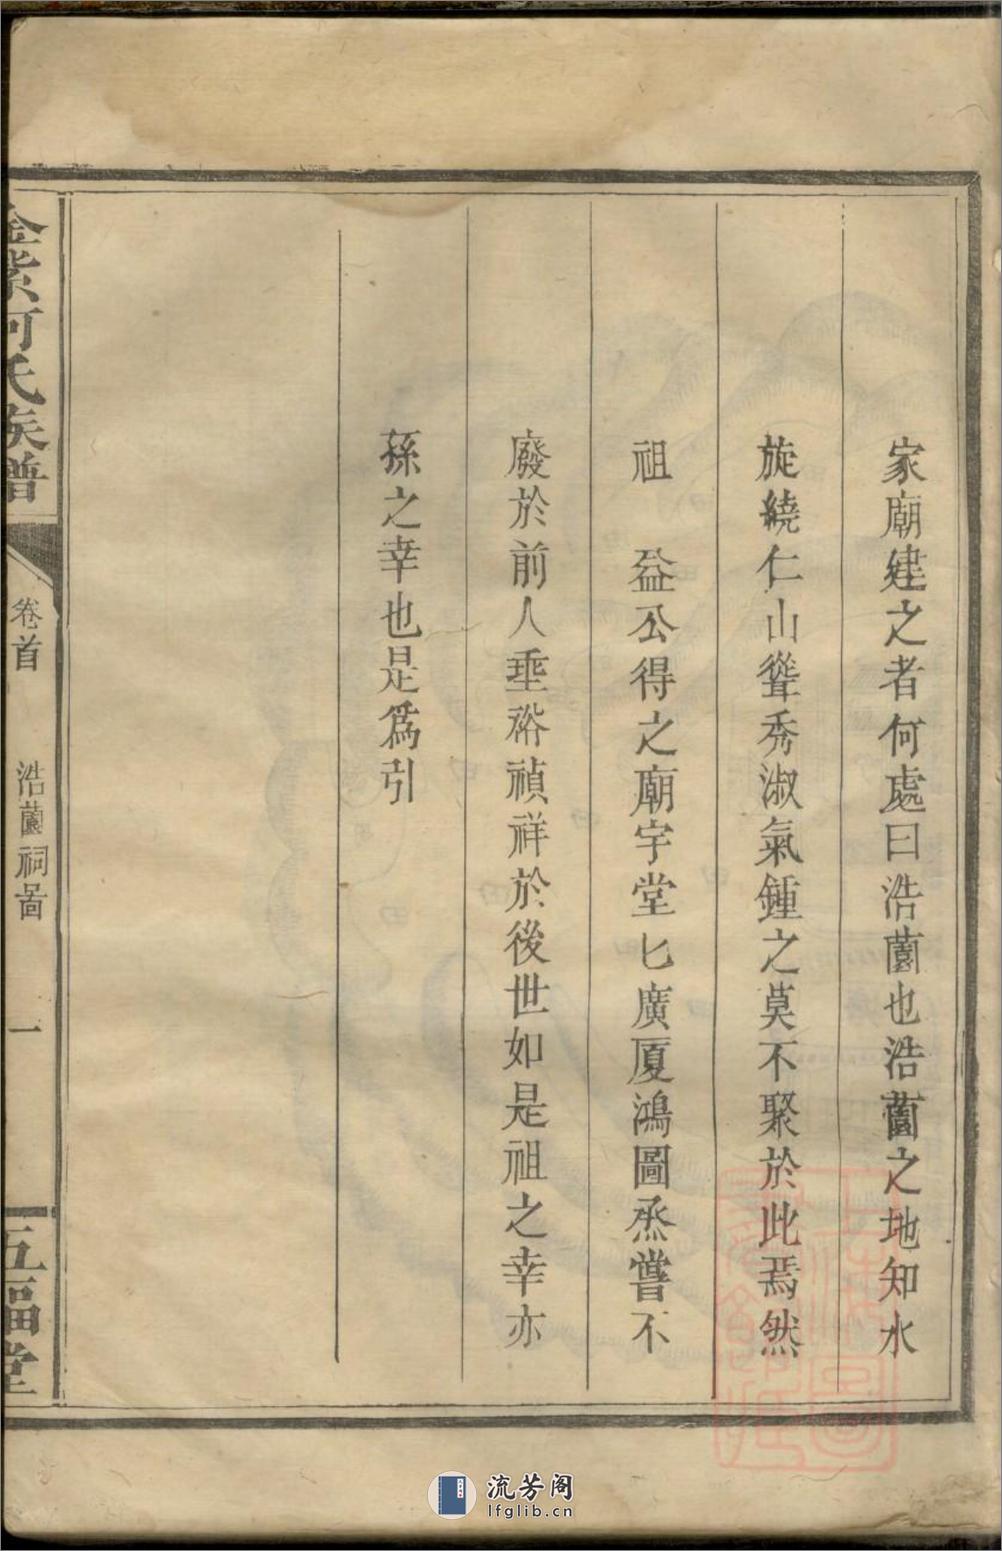 家廟建之者何處曰浩薗也浩薗之地知水
旋繞仁山聳秀淑氣鍾之莫不聚於此焉然
祖　益公得之廟宇堂匕廣厦鴻圖烝嘗不
廢於前人垂裕禎祥於後世如是祖之幸亦
孫之幸也是爲引
金紫何氏族譜
卷首
浩薗祠啚
一
五福堂
流芳阁
lfglib.cn